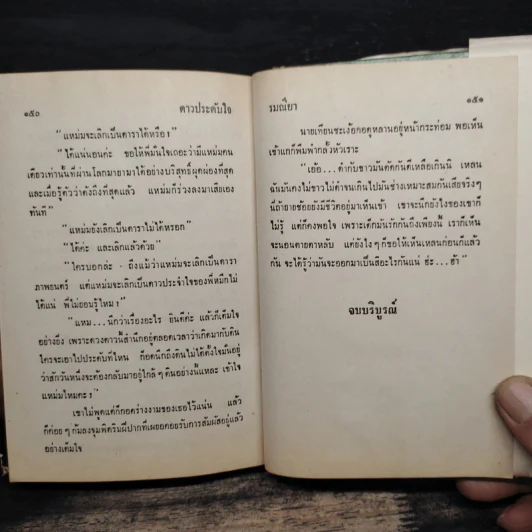 ๑๕๐ ดาวประดับใจ
"แหม่มจะเลิกเป็นดาราได้หรือ?"
"ได้แน่นอนค่ะ ขอให้พี่มั่นใจเถอะว่ามีแหม่มคน
เดียวเท่านั้นที่ผ่านโลกมายามาได้อย่างบริสุทธิ์ผุดผ่องที่สุด
และเมื่อรู้ตัวว่าดังถึงที่สุดแล้ว แหม่มก็ร่วงลงมาเสียเอง
ทันที"
"แหม่มยังเลิกเป็นดาราไม่ได้หรอก"
"ได้ค่ะ และเลิกแล้วด้วย"
"ใครบอกล่ะ - ถึงแม้ว่าแหม่มจะเลิกเป็นดารา
ภาพยนตร์ แต่แหม่มจะเลิกเป็นดาวประจำใจของพี่หมึกไม่
ได้แน่ พี่ไม่ยอมรู้ไหม!"
"แหม...นึกว่าเรื่องอะไร ยินดีค่ะ แล้วก็เต็มใจ
อย่างยิ่ง เพราะดวงดาวนี้สำนึกอยู่ตลอดเวลาว่าเกิดมากับดิน
ใครจะเอาไปประดับที่ไหน ก็อดนึกถึงดินไม่ได้ตั้งใจมั่นอยู่
ว่าสักวันหนึ่งจะต้องกลับมาอยู่ใกล้ๆ ดินอย่างนี้แหละ เข้าใจ
แหม่มไหมคะ?"
เขาไม่พูดแต่ก็กอดร่างงามของเธอไว้แน่น แล้ว
ก็ค่อยๆ ก้มลงจุมพิตริมฝีปากที่เผยอคอยรับการสัมผัสอยู่แล้ว
อย่างเต็มใจ
รมณียา ๑๕๑
นายเทียนชะเง้อคอดูหลานอยู่หน้ากระท่อม พอเห็น
เข้าแกก็พึมพำกลั้วหัวเราะ
"เอ้อ...ดำกับขาวมันตัดกันดีเหลือเกินนิ เหลน
ฉันมันคงไม่ขาวไม่ดำจนเกินไปมันช่างเหมาะสมกันเสียจริงๆ
นี่ถ้ายายช้อยยังมีชีวิตอยู่มาเห็นเข้า เขาจะนึกยังไงของเขาก็
ไม่รู้ แต่ก็คงพอใจ เพราะเด็กมันรักกันถึงเพียงนี้ เราก็เห็น
จะนอนตายตาหลับ แต่ยังไงๆ ก็ขอให้เห็นเหลนก่อนก็แล้ว
กัน จะได้รู้ว่ามันจะออกมาเป็นสีอะไรกันแน่ ฮ่ะ...ฮ้า"
จบบริบูรณ์